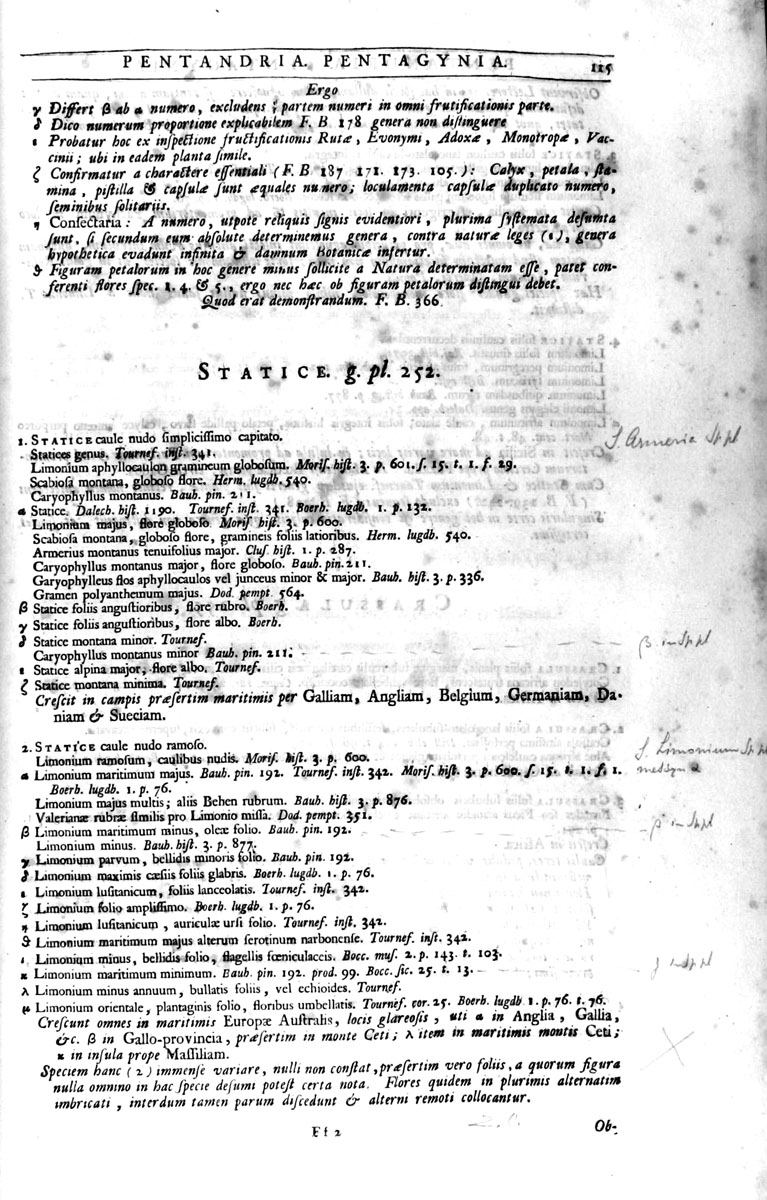 PENTANDRIA. PENTAGYNIA. 115
Ergo
γ Differt β ab α numero, excludens partem numeri in omni frutificationis parte.
δ Dico numerum proportione explicabilem F. B. 178 genera non diſtinguere
ε Probatur hoc ex inſpectione fructificationis Rutæ, Evonymi, Adoxæ, Monotropæ, Vac-
cinii; ubi in eadem planta ſimile.
ζ Confirmatur a charactere eſſentiali (F. B. 187 171. 173. 105.): Calyx, petala, ſta-
mina, piſtilla & capſulæ ſunt æquales numero; loculamenta capſulæ duplicato numero,
ſeminibus ſolitariis.
η Conſectaria: A numero, utpote reliquis ſignis evidentiori, plurima ſyſtemata deſumta
ſunt. ſi ſecundum eum abſolute determinemus genera, contra naturæ leges (ε), genera
hypothetica evadunt infinita & damnum Botanicæ infertur.
ϑ Figuram petalorum in hoc genere minus ſollicite a Natura determinatam eſſe, patet con-
ferenti flores ſpec. 1. 4. & 5., ergo nec hæc ob figuram petalorum diſtingui debet.
Quod erat demonſtrandum. F. B. 366.
STATICE. g. pl. 252.
1. STATICE caule nudo ſimpliciſſimo capitato.
Statices genus. Tournef. inſt. 341.
Limonium aphyllocaulon gramineum globoſum. Moriſ. hiſt. 3. p. 601. ſ. 15. t. 1. f. 29.
Scabioſa montana, globoſo flore. Herm. lugdb. 540.
Caryophyllus montanus. Baub. pin. 211.
α Statice. Dalech. hiſt. 1190. Tournef. inſt. 341. Boerh. lugdb. 1. p. 132.
Limonium majus, flore globoſo. Moriſ. hiſt. 3. p. 600.
Scabioſa montana, globoſo flore, gramineis foliis latioribus. Herm. lugdb. 540.
Armerius montanus tenuifolius major. Cluſ. hiſt. 1. p. 287.
Caryophyllus montanus major, flore globoſo. Baub. pin. 211.
Garyophylleus flos aphyllocaulos vel junceus minor & major. Baub. hiſt. 3. p. 336.
Gramen polyanthemum majus. Dod. pempt. 564.
β Statice foliis anguſtioribus, flore rubro. Boerh.
γ Statice foliis anguſtioribus, flore albo. Boerh.
δ Statice montana minor. Tournef.
Caryophyllus montanus minor Baub. pin. 211.
ε Statice alpina major, flore albo. Tournef.
ζ Statice montana minima. Tournef.
Creſcit in campis præſertim maritimis per Galliam, Angliam, Belgium, Germaniam, Da-
niam & Sueciam.
S. Armeria Sp. pl
β in Sp pl
2. STATICE caule nudo ramoſo.
Limonium ramoſum, caulibus nudis. Moriſ. hiſt. 3. p. 600.
α Limonium maritimum majus. Baub. pin. 192. Tournef. inſt. 342. Moriſ. hiſt. 3. p. 600. ſ. 15. t. 1. f. 1.
Boerh. lugdb. 1. p. 76.
Limonium majus multis; aliis Behen rubrum. Baub. hiſt. 3. p. 876.
Valerianæ rubræ ſimilis pro Limonio miſſa. Dod. pempt. 351.
β Limonium maritimum minus, oleæ folio. Baub. pin. 192.
Limonium minus. Baub. hiſt. 3. p. 877.
γ Limonium parvum, bellidis minoris folio. Baub. pin. 192.
δ Limonium maximis cæſiis foliis glabris. Boerh. lugdb. 1. p. 76.
ε Limonium luſitanicum, foliis lanceolatis. Tournef. inſt. 342.
ζ Limonium folio ampliſſimo. Boerh. lugdb. 1. p. 76.
η Limonium luſitanicum, auriculæ urſi folio. Tournef. inſt. 342.
ϑ Limonium maritimum majus alterum ſerotinum narbonenſe. Tournef. inſt. 342.
ι Limonium minus, bellidis folio, flagellis fœniculaceis. Bocc. muſ. 2. p. 143. t. 103.
κ Limonium maritimum minimum. Baub. pin. 192. prod. 99. Bocc. ſic. 25. t. 13.
λ Limonium minus annuum, bullatis foliis, vel echioides. Tournef.
μ Limonium orientale, plantaginis folio, floribus umbellatis. Tournef. cor. 25. Boerh. lugdb 1. p. 76. t. 76.
Creſcunt omnes in maritimis Europæ Auſtralis, locis glareoſis, uti α in Anglia, Gallia,
&c. β in Gallo-provincia, præſertim in monte Ceti; λ item in maritimis montis Ceti;
κ in inſula prope Maſſiliam.
Speciem hanc (2) immenſe variare, nulli non conſtat, præſertim vero foliis, a quorum figura
nulla omnino in hac ſpecie deſumi poteſt certa nota. Flores quidem in plurimis alternatim
imbricati, interdum tamen parum diſcedunt & alterni remoti collocantur.
S. Limonium Sp. pl
β in Sp pl
in Sp pl
Ff 2
Ob-